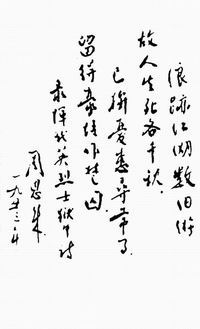 浪迹江湖数旧游
故人生死各千秋
已摈忧患寻常事
留得豪情作楚囚
录恽代英烈士狱中诗
周恩来
一九五三年